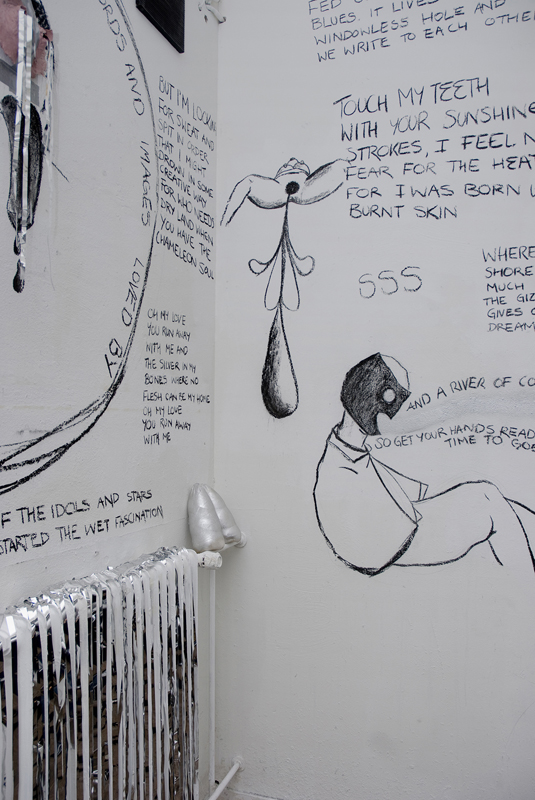 ORDS AND IMAGES LOVED BY
BUT I'M LOOKIN
FOR SWEAT AND
SPIT IN ORDER
THAT I MIGHT
DROWN IN SOME
CREATIVE WAY
FOR WHO NEEDS
DRY LAND WHEN
YOU HAVE THE
CHAMELEON SOUL
OH MY LOVE
YOU RUN AWAY
WITH ME AND
THE SILVER IN MY
BONES WHERE NO
FLESH CAN BE MY HOME
OH MY LOVE
YOU RUN AWAY
WITH ME
F THE IDOLS AND STARS
STARTED THE WET FASCINATION
FED O
BLUES. IT LIVES
WINDOWLESS HOLE AND
WE WRITE TO EACH OTHE
TOUCH MY TEETH
WITH YOUR SUNSHINE
STROKES, I FEEL N
FEAR FOR THE HEAT
FOR I WAS BORN
BURNT SKIN
SSS
WHERE
SHORE
MUCH
THE GIZ
GIVES
DREAM
AND A RIVER OF CO
SO GET YOUR HANDS READ
TIME TO GO